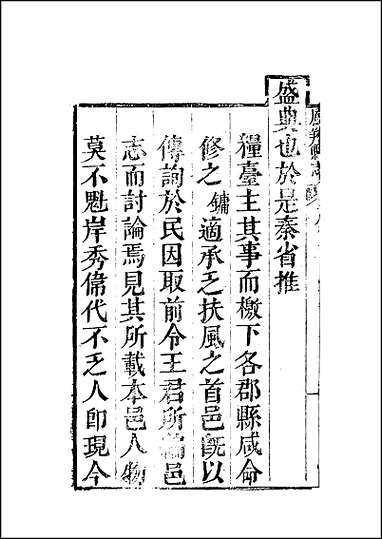 盛典也於是秦省推
糧臺主其事而檄下各郡縣咸命
修之鏞適承乏扶風之首邑旣以
傳詢於民因取前令王君所編邑
志而討論焉見其所載本邑人物
莫不魁岸秀偉代不乏人卽現今